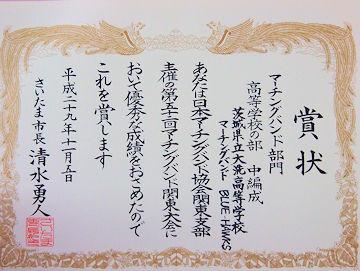 賞状
マーチングバンド部門
高等学校の部 中編成
茨城県立大洗高等学校
マーチングバンド BLUE HAWKS
あなたは日本マーチングバンド協会関東支部
主催の第五十一回マーチングバンド関東大会に
おいて優秀な成績をおさめたので
これを賞します
平成二十九年十一月五日
さいたま市長 清水勇人